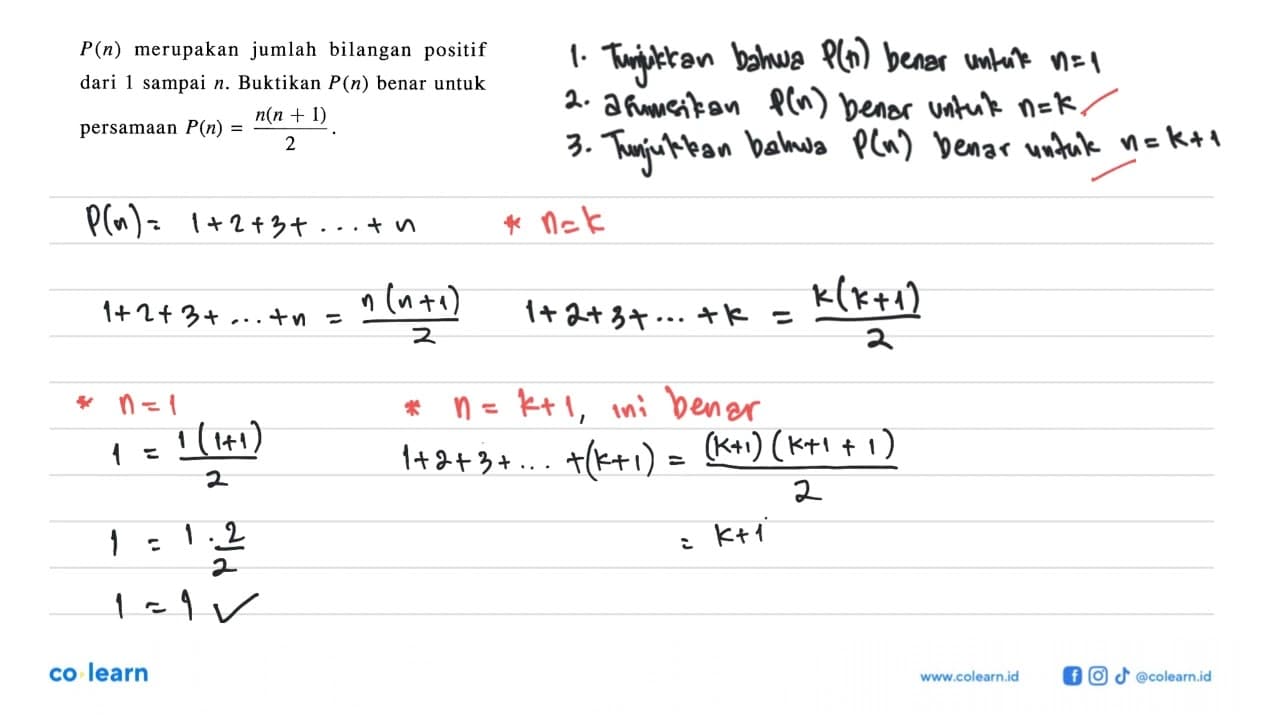 P(n) merupakan jumlah bilangan positif
dari 1 sampai n. Buktikan P(n) benar untuk
persamaan P(n) = n(n + 1)/2.
1. Tunjukkan bahwa P(n) benar untuk n=1
2. asumsikan P(n) benar untuk n=k
3. Tunjukkan bahwa P(n) benar untuk n=k+1
P(n) = 1+2+3+...+n
* n=k
1+2+3+...+n = n(n+1)/2
1+2+3+...+k = k(k+1)/2
* n=1
* n = k+1, ini benar
1 = 1(1+1)/2
1+2+3+... +(k+1) = (k+1)(k+1+1)/2
1 = 1·2/2
= k+1
1 = 1 ✓
co learn
www.colearn.id
@colearn.id